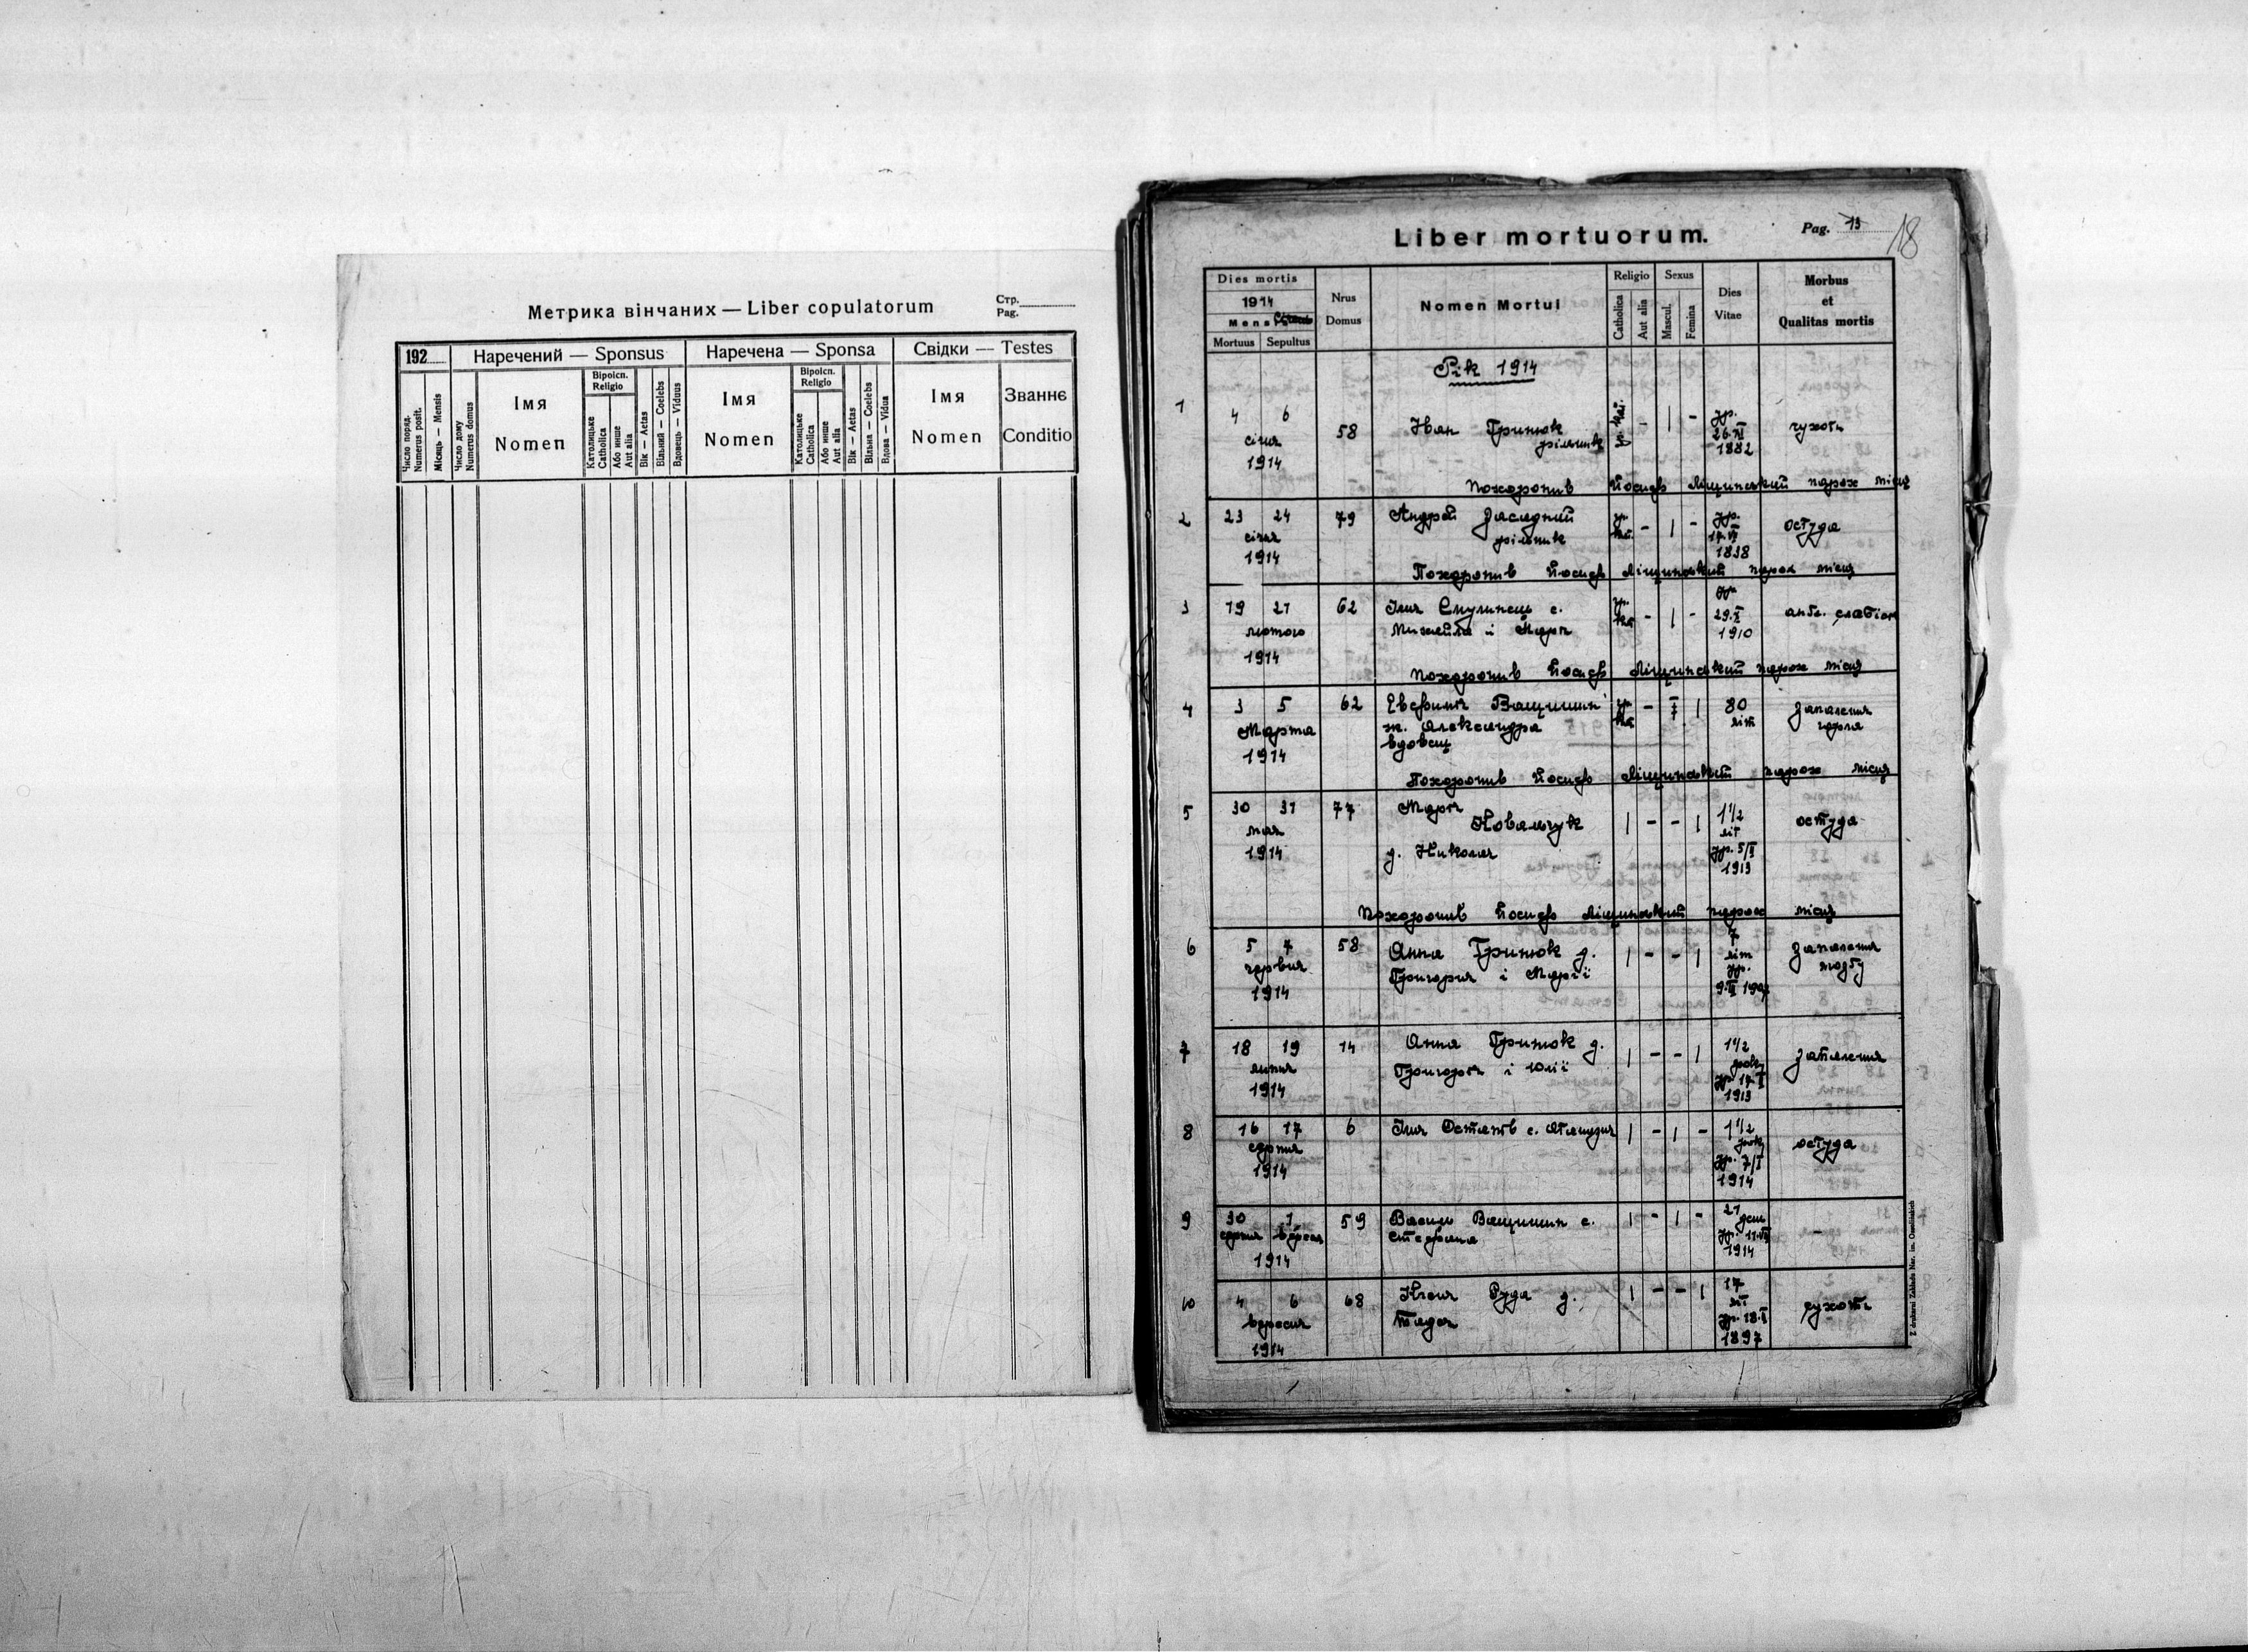 Метрика вінчаних — Liber copulatorum
Стр.
Pag.
192
Наречений — Sponsus
Наречена — Sponsa
Свідки — Testes
Число поряд.
Numerus posit.
Місяць — Mensis
Число дому
Numerus domus
Імя
Nomen
Віроісп.
Religio
Католицьке
Catholica
Або инше
Aut alia
Вік — Aetas
Вільний — Coelebs
Вдовець — Viduus
Імя
Nomen
Віроісп.
Religio
Католицьке
Catholica
Або инше
Aut alia
Вік — Aetas
Вільна — Coelebs
Вдова — Vidua
Імя
Nomen
Званнє
Conditio
Liber mortuorum.
Pag. 13
18
Dies mortis
1914
Mensis
Mortuus Sepultus
Nrus
Domus
Nomen Mortui
Religio
Catholica
Aut alia
Sexus
Mascul.
Femina
Dies
Vitae
Morbus
et
Qualitas mortis
Рік 1914
1
4 6
січня
1914
58
Іван Гринюк
рільник
гр. кат.
- | -
ур.
26.
1882
сухоти
Похоронив Йосиф Ліщинський парох місц
2
23 24
січня
1914
79
Андрей Засидний
рільник
гр.
кат.
- | -
ур.
17.VI
1838
остуда
Похоронив Йосиф Ліщинський парох місц
3
19 21
лютого
1914
62
Ілия Смулинець с.
Михайла і Марії
гр.
ка
- | -
ур.
29.X
1910
слабіст
Похоронив Йосиф Ліщинський парох місц
4
3 5
Марта
1914
62
Евфимія Ващишин
ж. Александра
вдовец
гр.
ка
- |
80
літ
Запалення
горла
Похоронив Йосиф Ліщинський парох місц
5
30 31
мая
1914
77
Марія
Ковальчук
д. Николая
| - - |
1 1/2
літ
ур. 5/I
1913
остуда
Похоронив Йосиф Ліщинський парох місц
6
5 7
червня
1914
58
Анна Гринюк д.
Григорія і Марії
| - - |
7
літ
ур.
запалення
мозгу
7
18 19
липня
1914
14
Анна Гринюк д.
Григорія і Юлії
| - - |
1 1/2
рок
ур. 17.I
1913
запалення
8
16 17
серпня
1914
6
Ілия Остапів с.
| - | -
1 1/2
рок
ур. 7/I
1914
остуда
9
30 1
серпня вересня
1914
59
Василь Ващишин с.
Стефана
| - | -
21
ден
1914
-
10
4 6
вересня
1914
68
Ксеня Руда д.
Тадея
| - - |
17
літ
ур. 18.I
1897
сухоти
Z drukarni Zakładu Nar. im. Ossolińskich